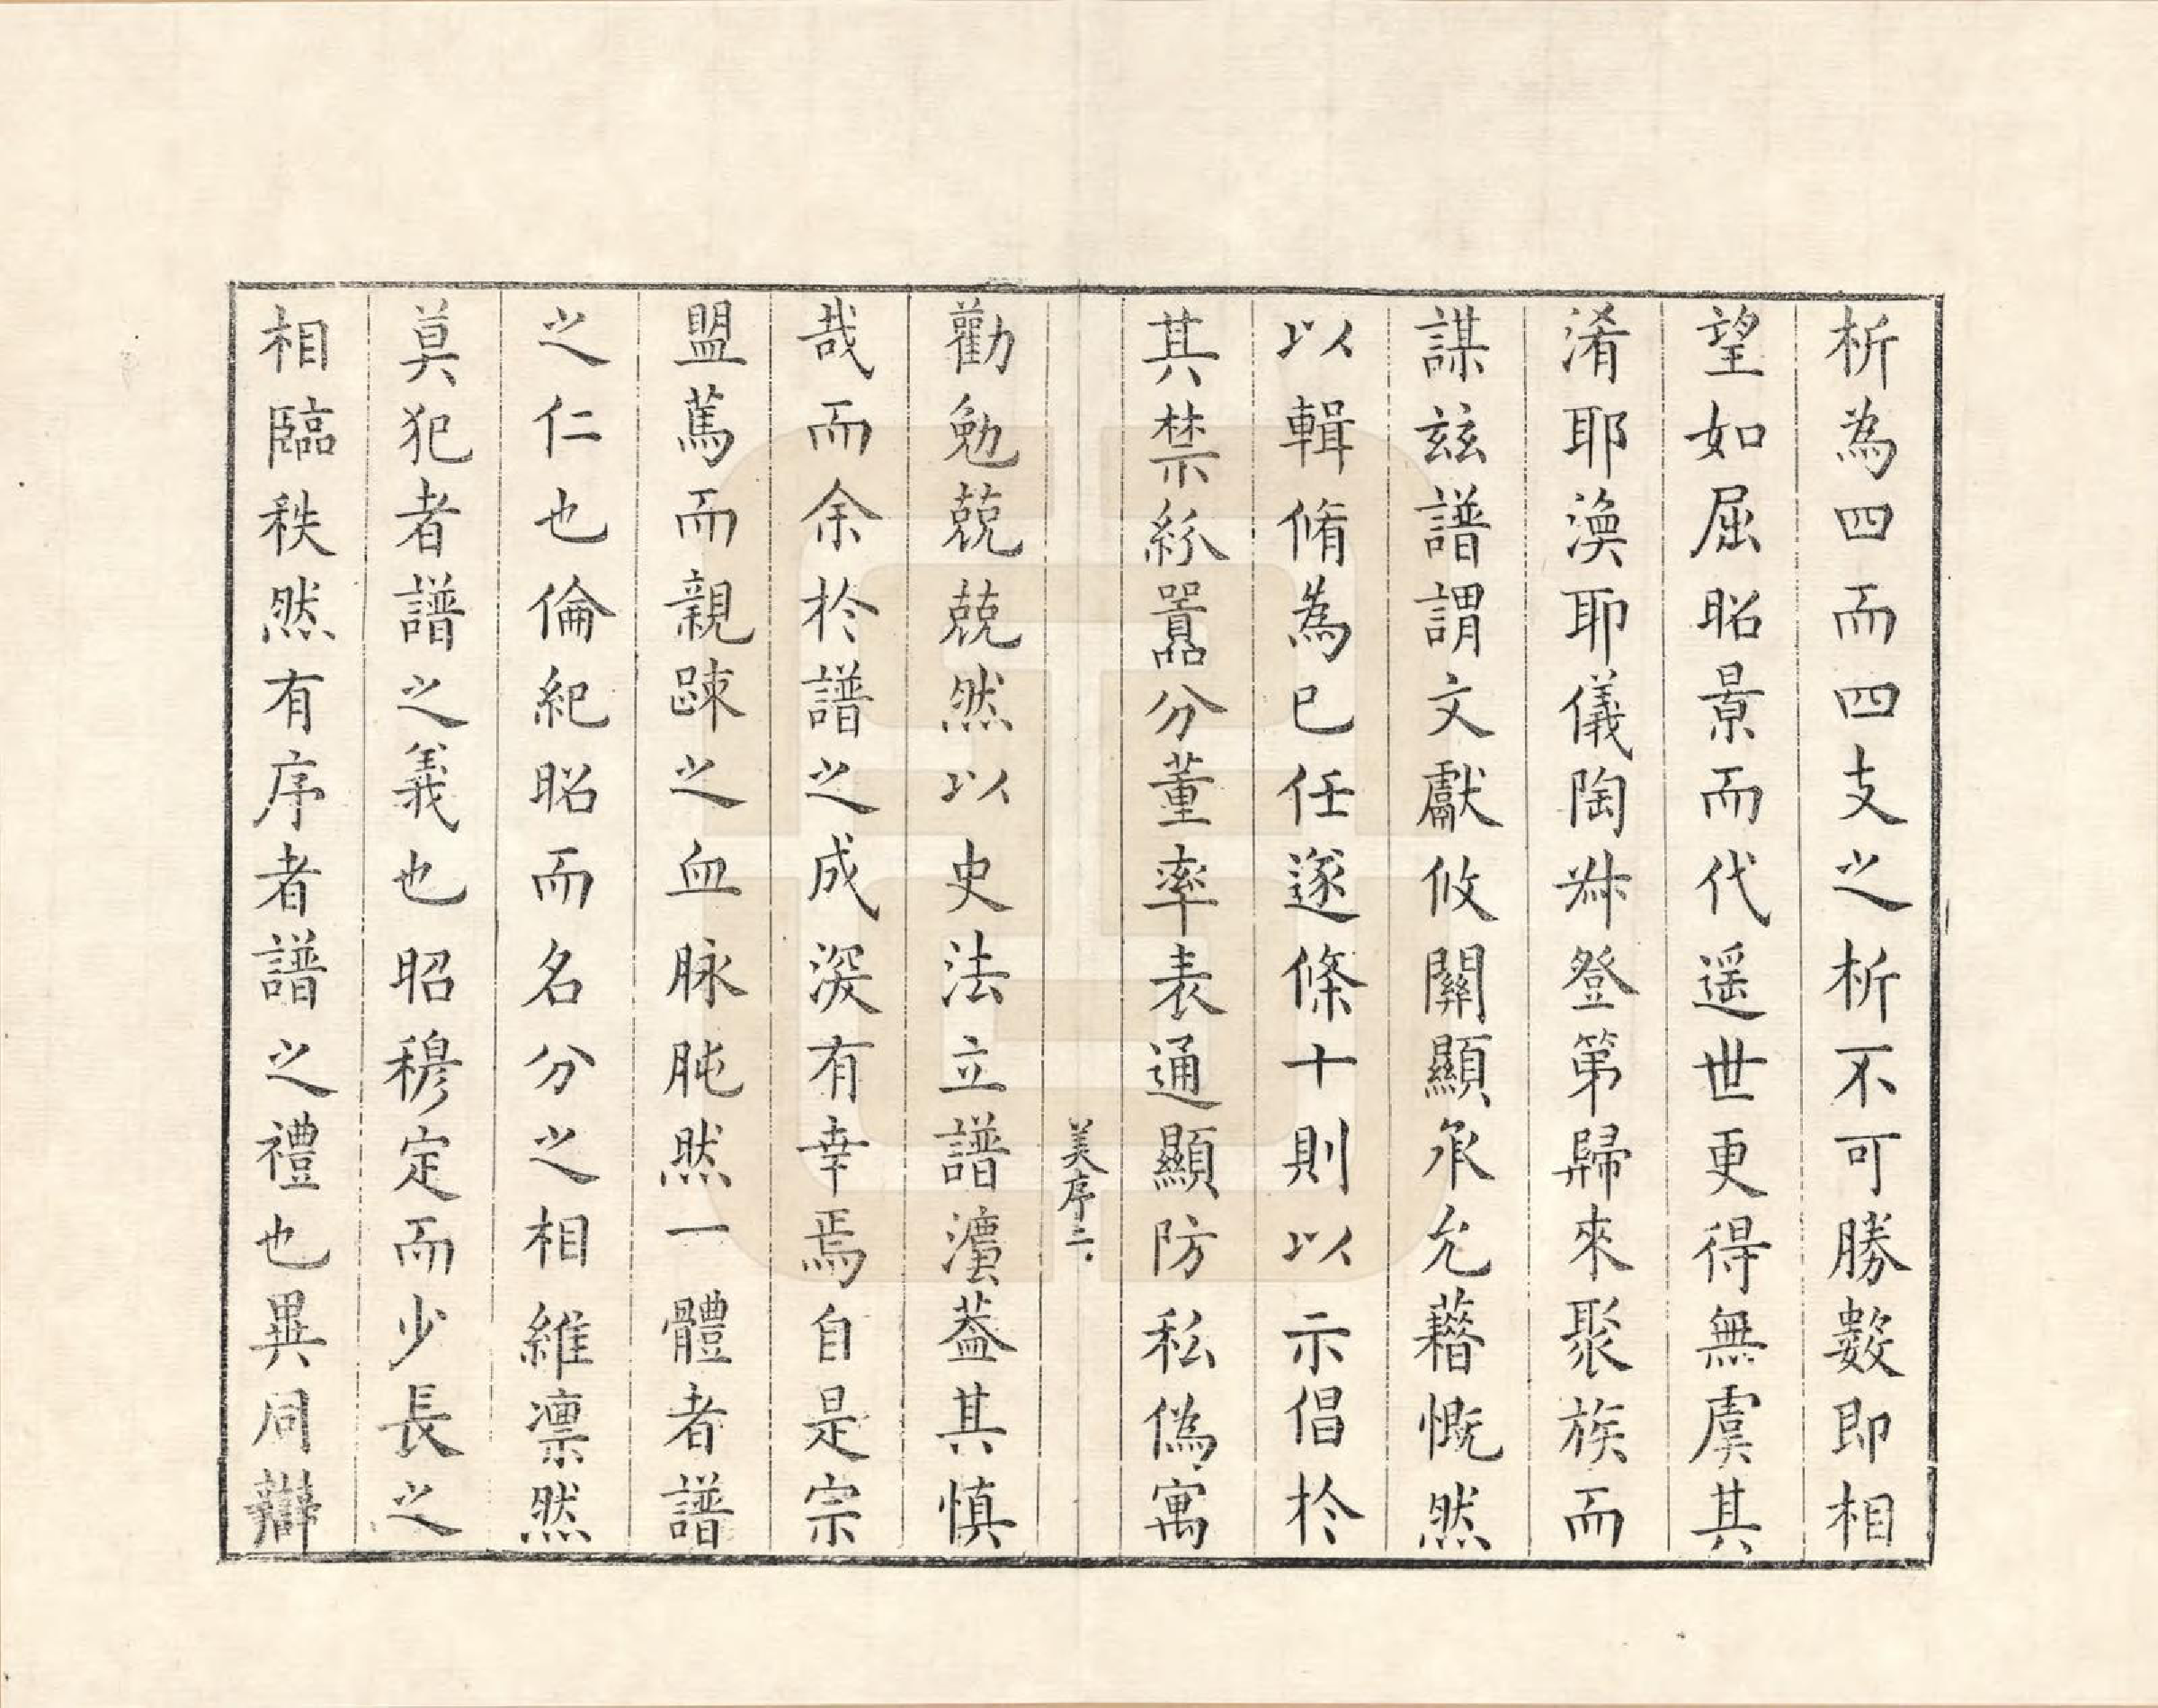 析為四而四支之析不可勝數即相
望如屈昭景而代遥世更得無虞其
淆耶渙耶儀陶㭊登第歸來聚族而
謀茲譜謂文獻攸關顯承允藉慨然
以輯脩為已任遂條十則以示倡於
其禁紛囂分董率表通顯防私偽寓
美序二
勸勉兢兢然以史法立譜灋葢其慎
哉而余於譜之成深有幸焉自是宗
盟篤而親踈之血脉肫然一體者譜
之仁也倫紀昭而名分之相維凛然
莫犯者譜之義也昭穆定而少長之
相臨秩然有序者譜之禮也異同辯